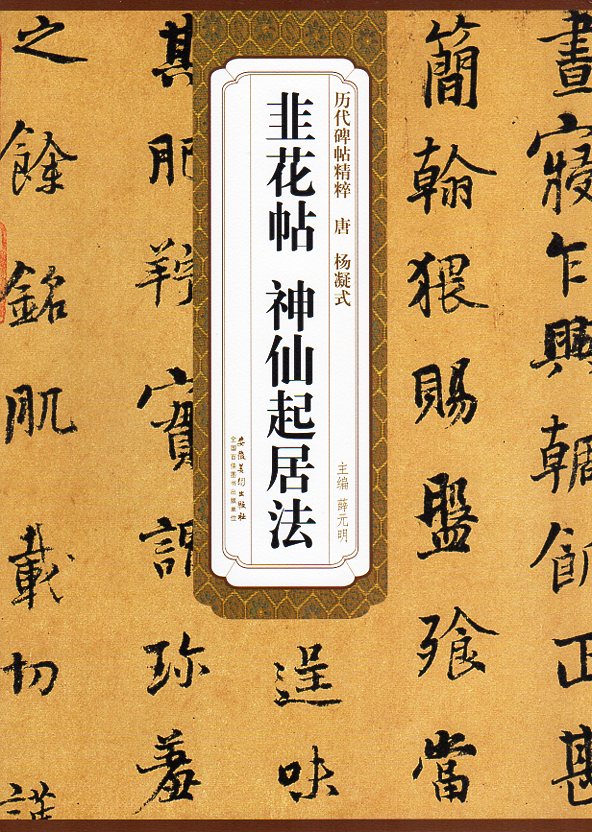 晝寢乍興輖飢正甚
簡翰猥賜盤飧當
历代碑帖精粹 唐 杨凝式
主编 薛元明
韭花帖 神仙起居法
安徽美术出版社
全国百佳图书出版单位
逞味
其肥羜實謂珍羞
之餘銘肌載切謹